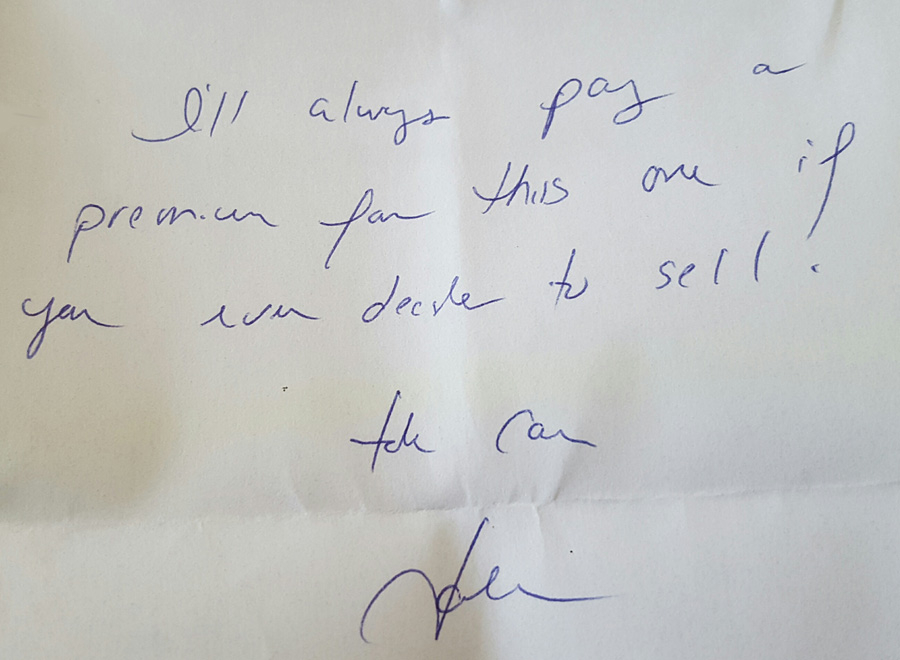 I'll always pay a
premium for this one if
you ever decide to sell.
take care